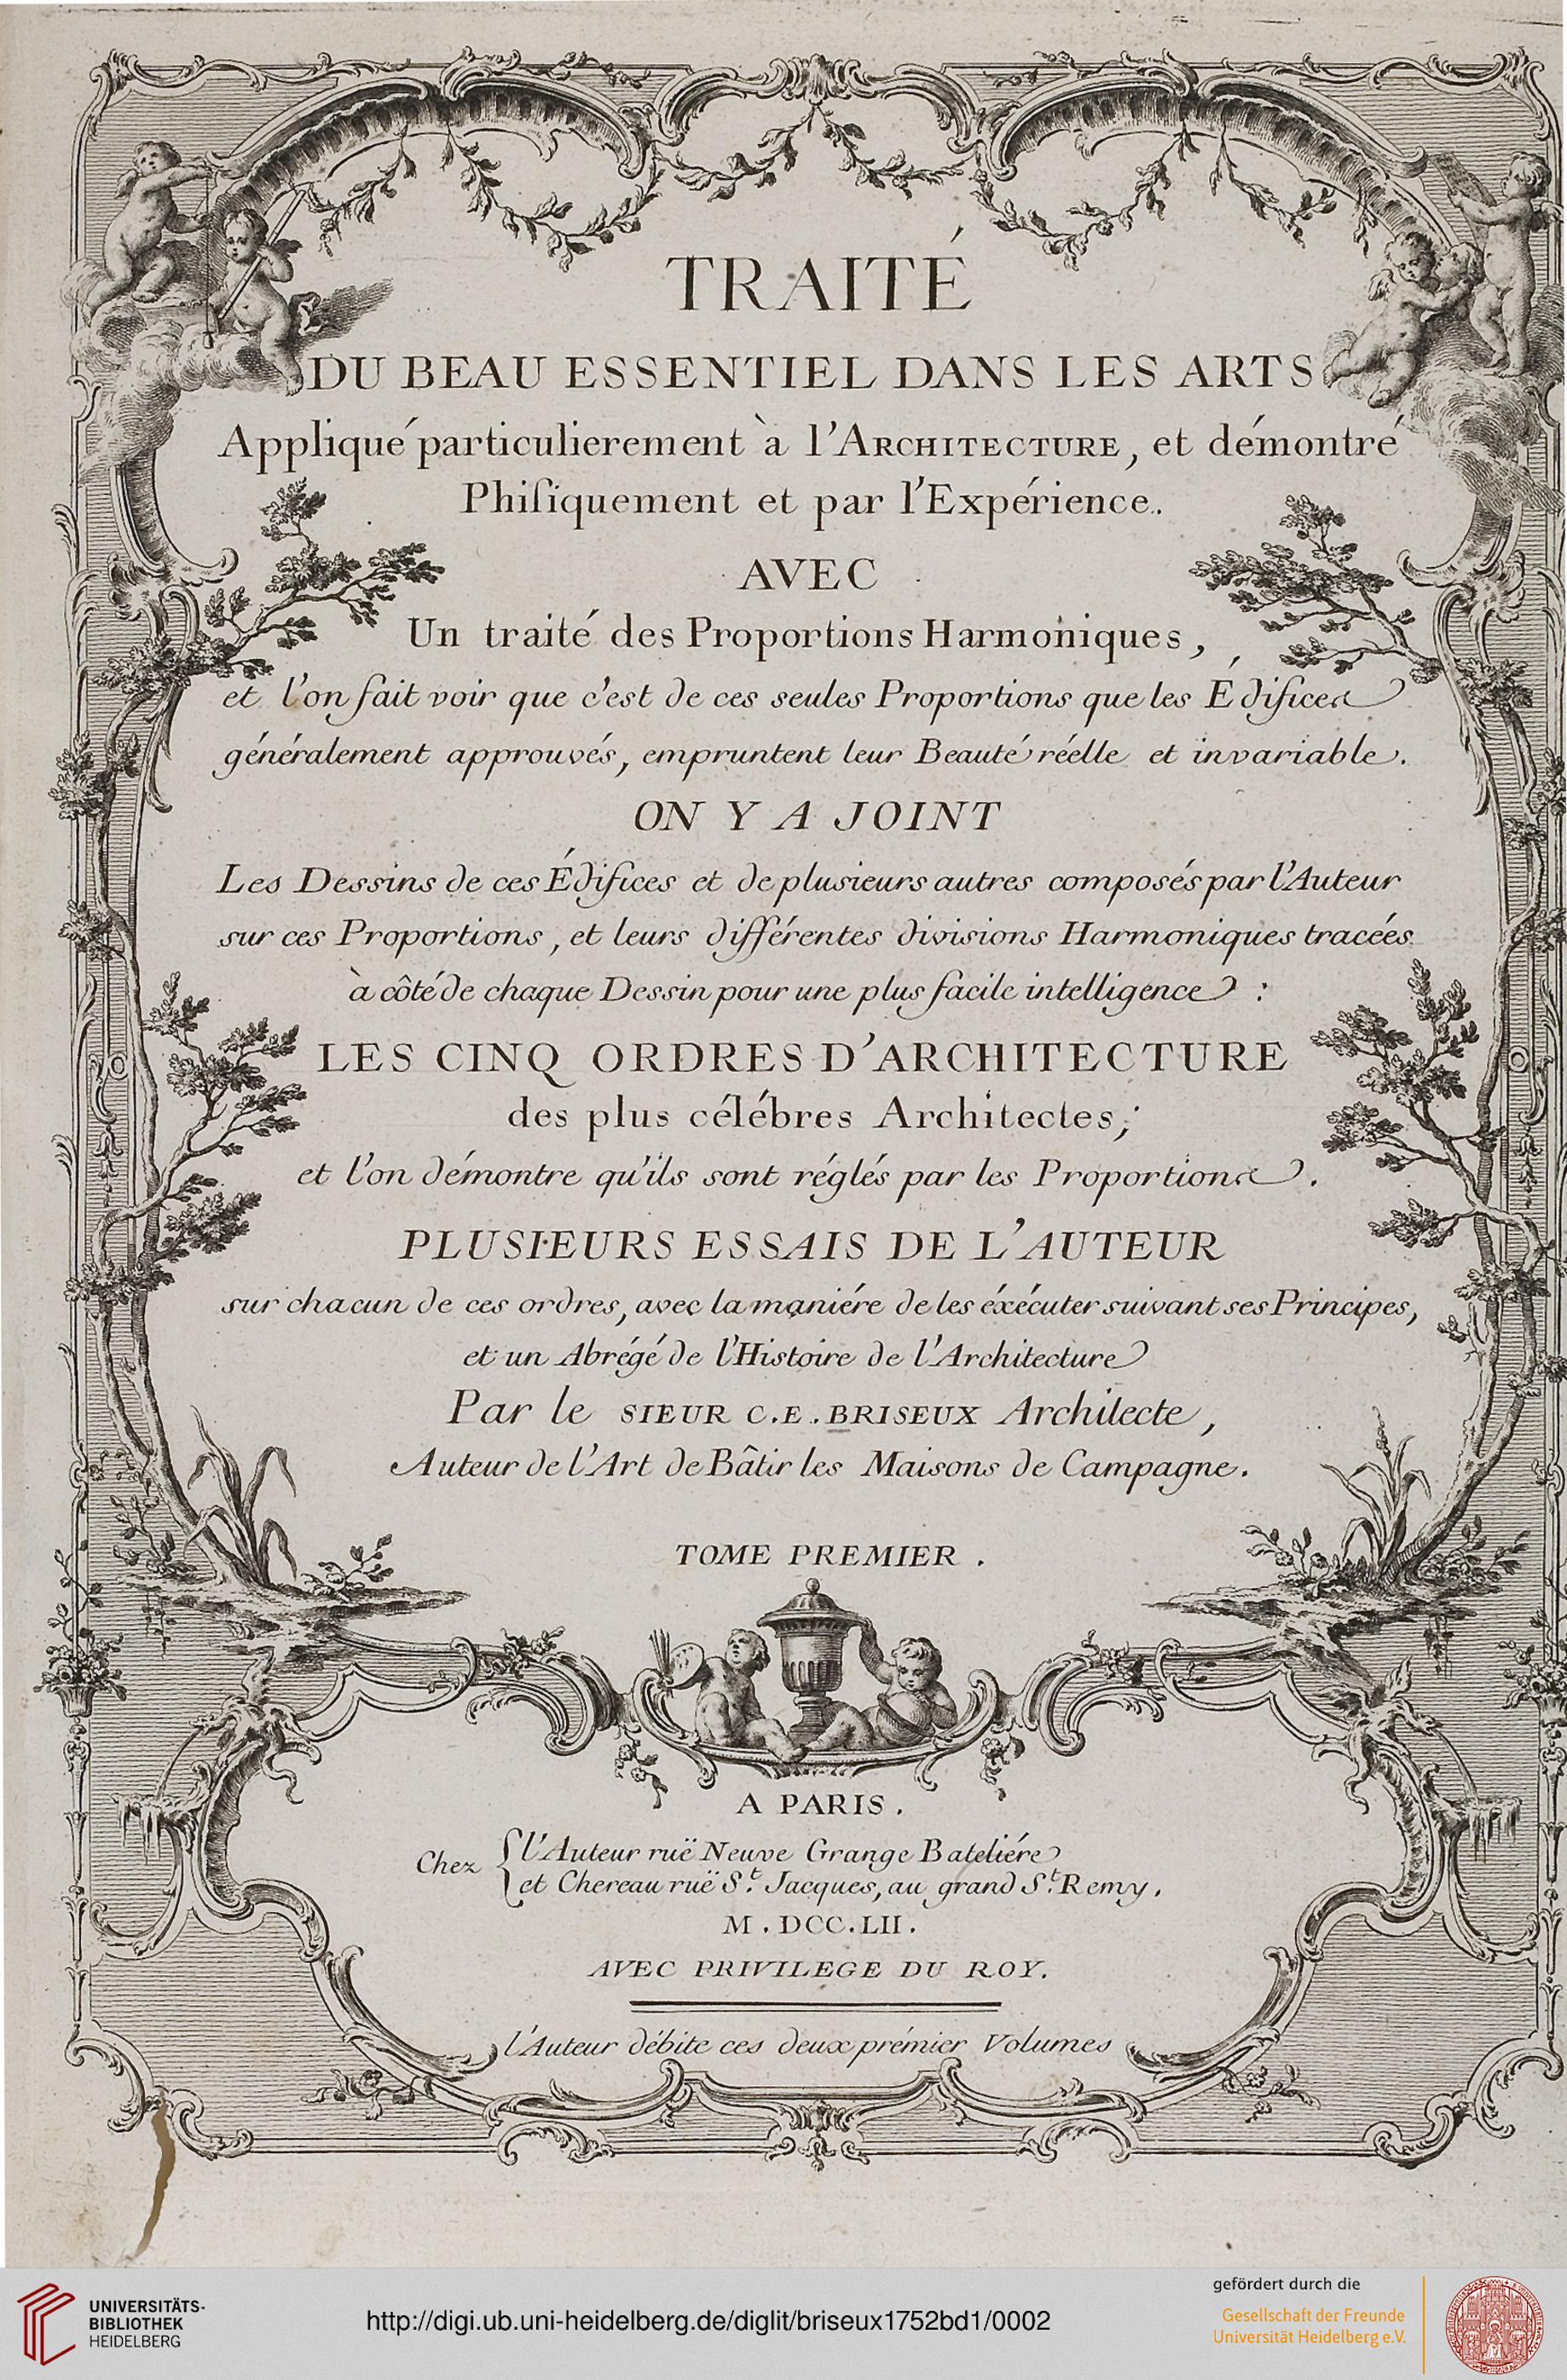 TRAITÉ
DU BEAU ESSENTIEL DANS LES ARTS
Appliqué particulierement à l'ARCHITECTURE, et démontré
Phiſiquement et par l'Expérience.
AVEC
Un traité des Proportions Harmoniques,
et l'on fait voir que c'est de ces seules Proportions que les Édifices
généralement approuvés, empruntent leur Beauté réelle et invariable.
ON Y A JOINT
Les Dessins de ces Édifices et de plusieurs autres composés par l'Auteur
sur ces Proportions, et leurs différentes divisions Harmoniques tracées
à côté de chaque Dessin pour une plus facile intelligence :
LES CINQ ORDRES D'ARCHITECTURE
des plus célébres Architectes;
et l'on démontre qu'ils sont réglés par les Proportions.
PLUSIEURS ESSAIS DE L'AUTEUR
sur chacun de ces ordres, avec la maniére de les éxécuter suivant ses Principes,
et un Abrégé de l'Histoire de l'Architecture
Par le SIEUR C.E.BRISEUX Architecte,
Auteur de l'Art de Bâtir les Maisons de Campagne.
TOME PREMIER.
A PARIS.
Chez { l'Auteur ruë Neuve Grange Bateliére
et Chereau ruë St. Jacques, au grand St. Remy.
M.DCC.LII.
AVEC PRIVILEGE DU ROY.
l'Auteur débite ces deux prémier Volumes
UNIVERSITÄTS-
BIBLIOTHEK
HEIDELBERG
http://digi.ub.uni-heidelberg.de/diglit/briseux1752bd1/0002
gefördert durch die
Gesellschaft der Freunde
Universität Heidelberg e.V.